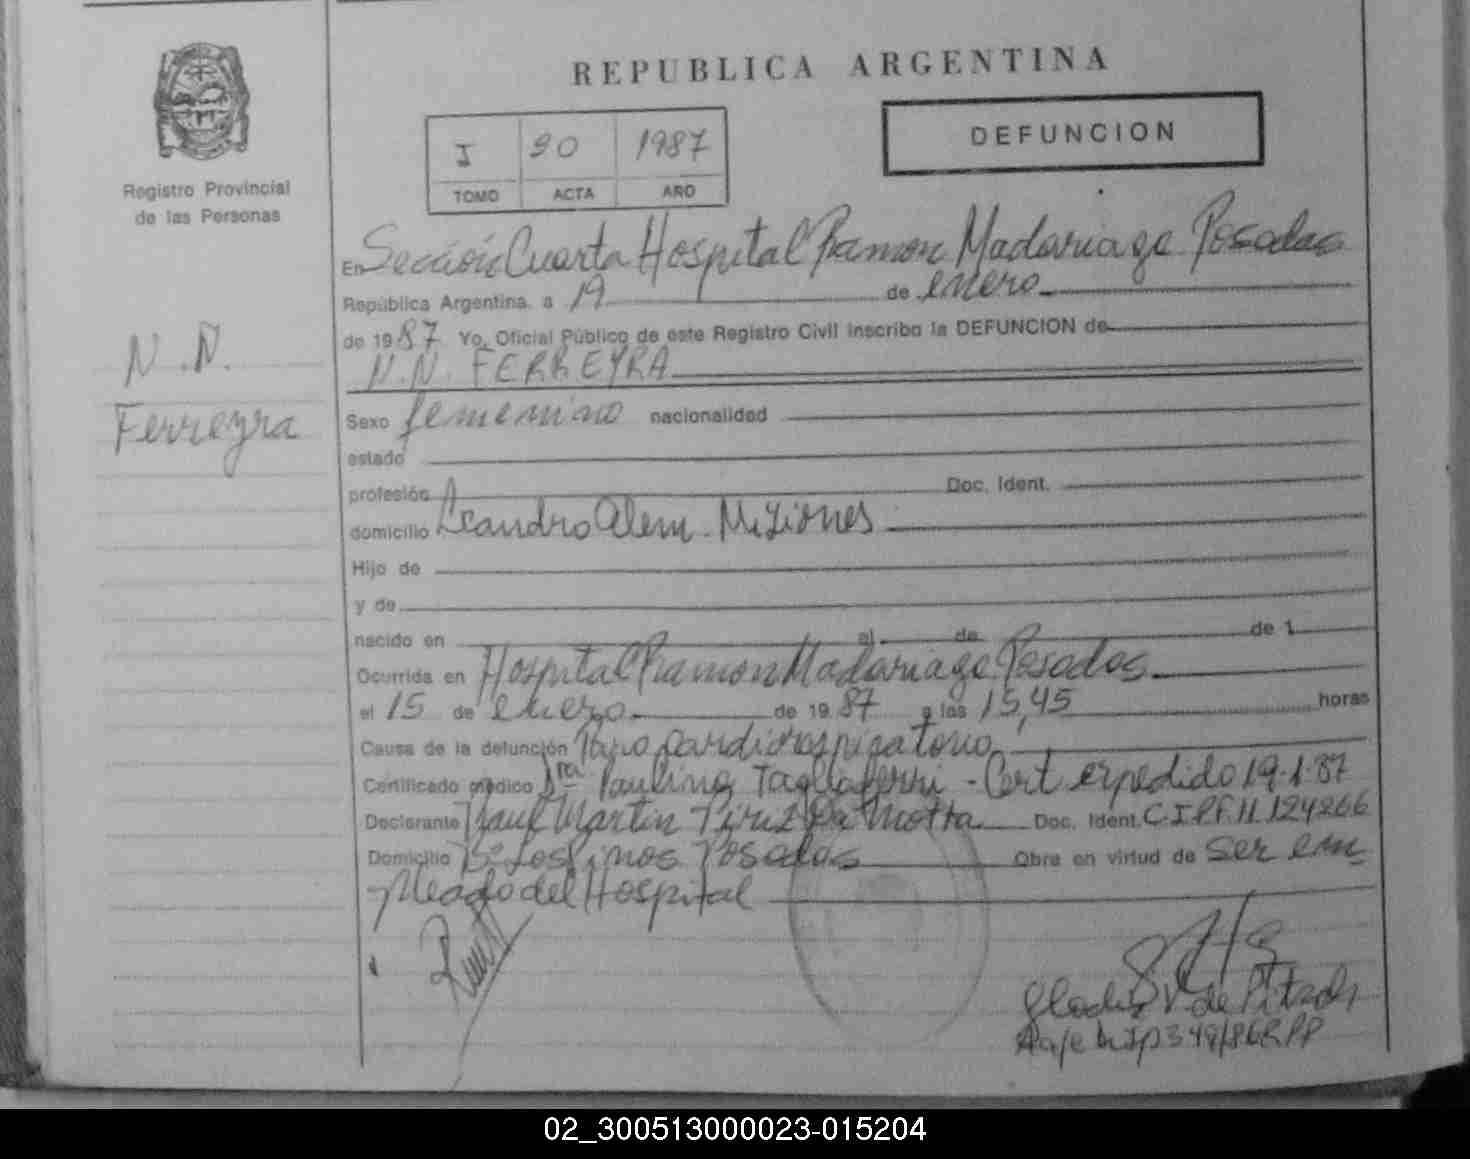 REPUBLICA ARGENTINA
I 90 1987
TOMO ACTA AÑO
DEFUNCION
Registro Provincial
de las Personas
N.N.
Ferreyra
En Sección Cuarta Hospital Ramon Madariaga Posadas
República Argentina, a 19 de enero
de 1987 Yo, Oficial Público de este Registro Civil inscribo la DEFUNCION de
N.N. FERREYRA
Sexo femenino nacionalidad
estado
profesión Doc. Ident.
domicilio Leandro Alem. Misiones
Hijo de
y de
nacido en el de de 1
Ocurrida en Hospital Ramon Madariaga Posadas
el 15 de enero de 1987 a las 15,45 horas
Causa de la defunción Paro Cardiorespiratorio
Certificado médico Dra. Paulina Tagliaferri - Cert expedido 19-1-87
Declarante Raul Martin Da Motta Doc. Ident. C.I.PF.11.124266
Domicilio Bº Los Pinos Posadas Obra en virtud de ser em
pleado del Hospital
Gladis V. de
349/86 RPP
02_300513000023-015204